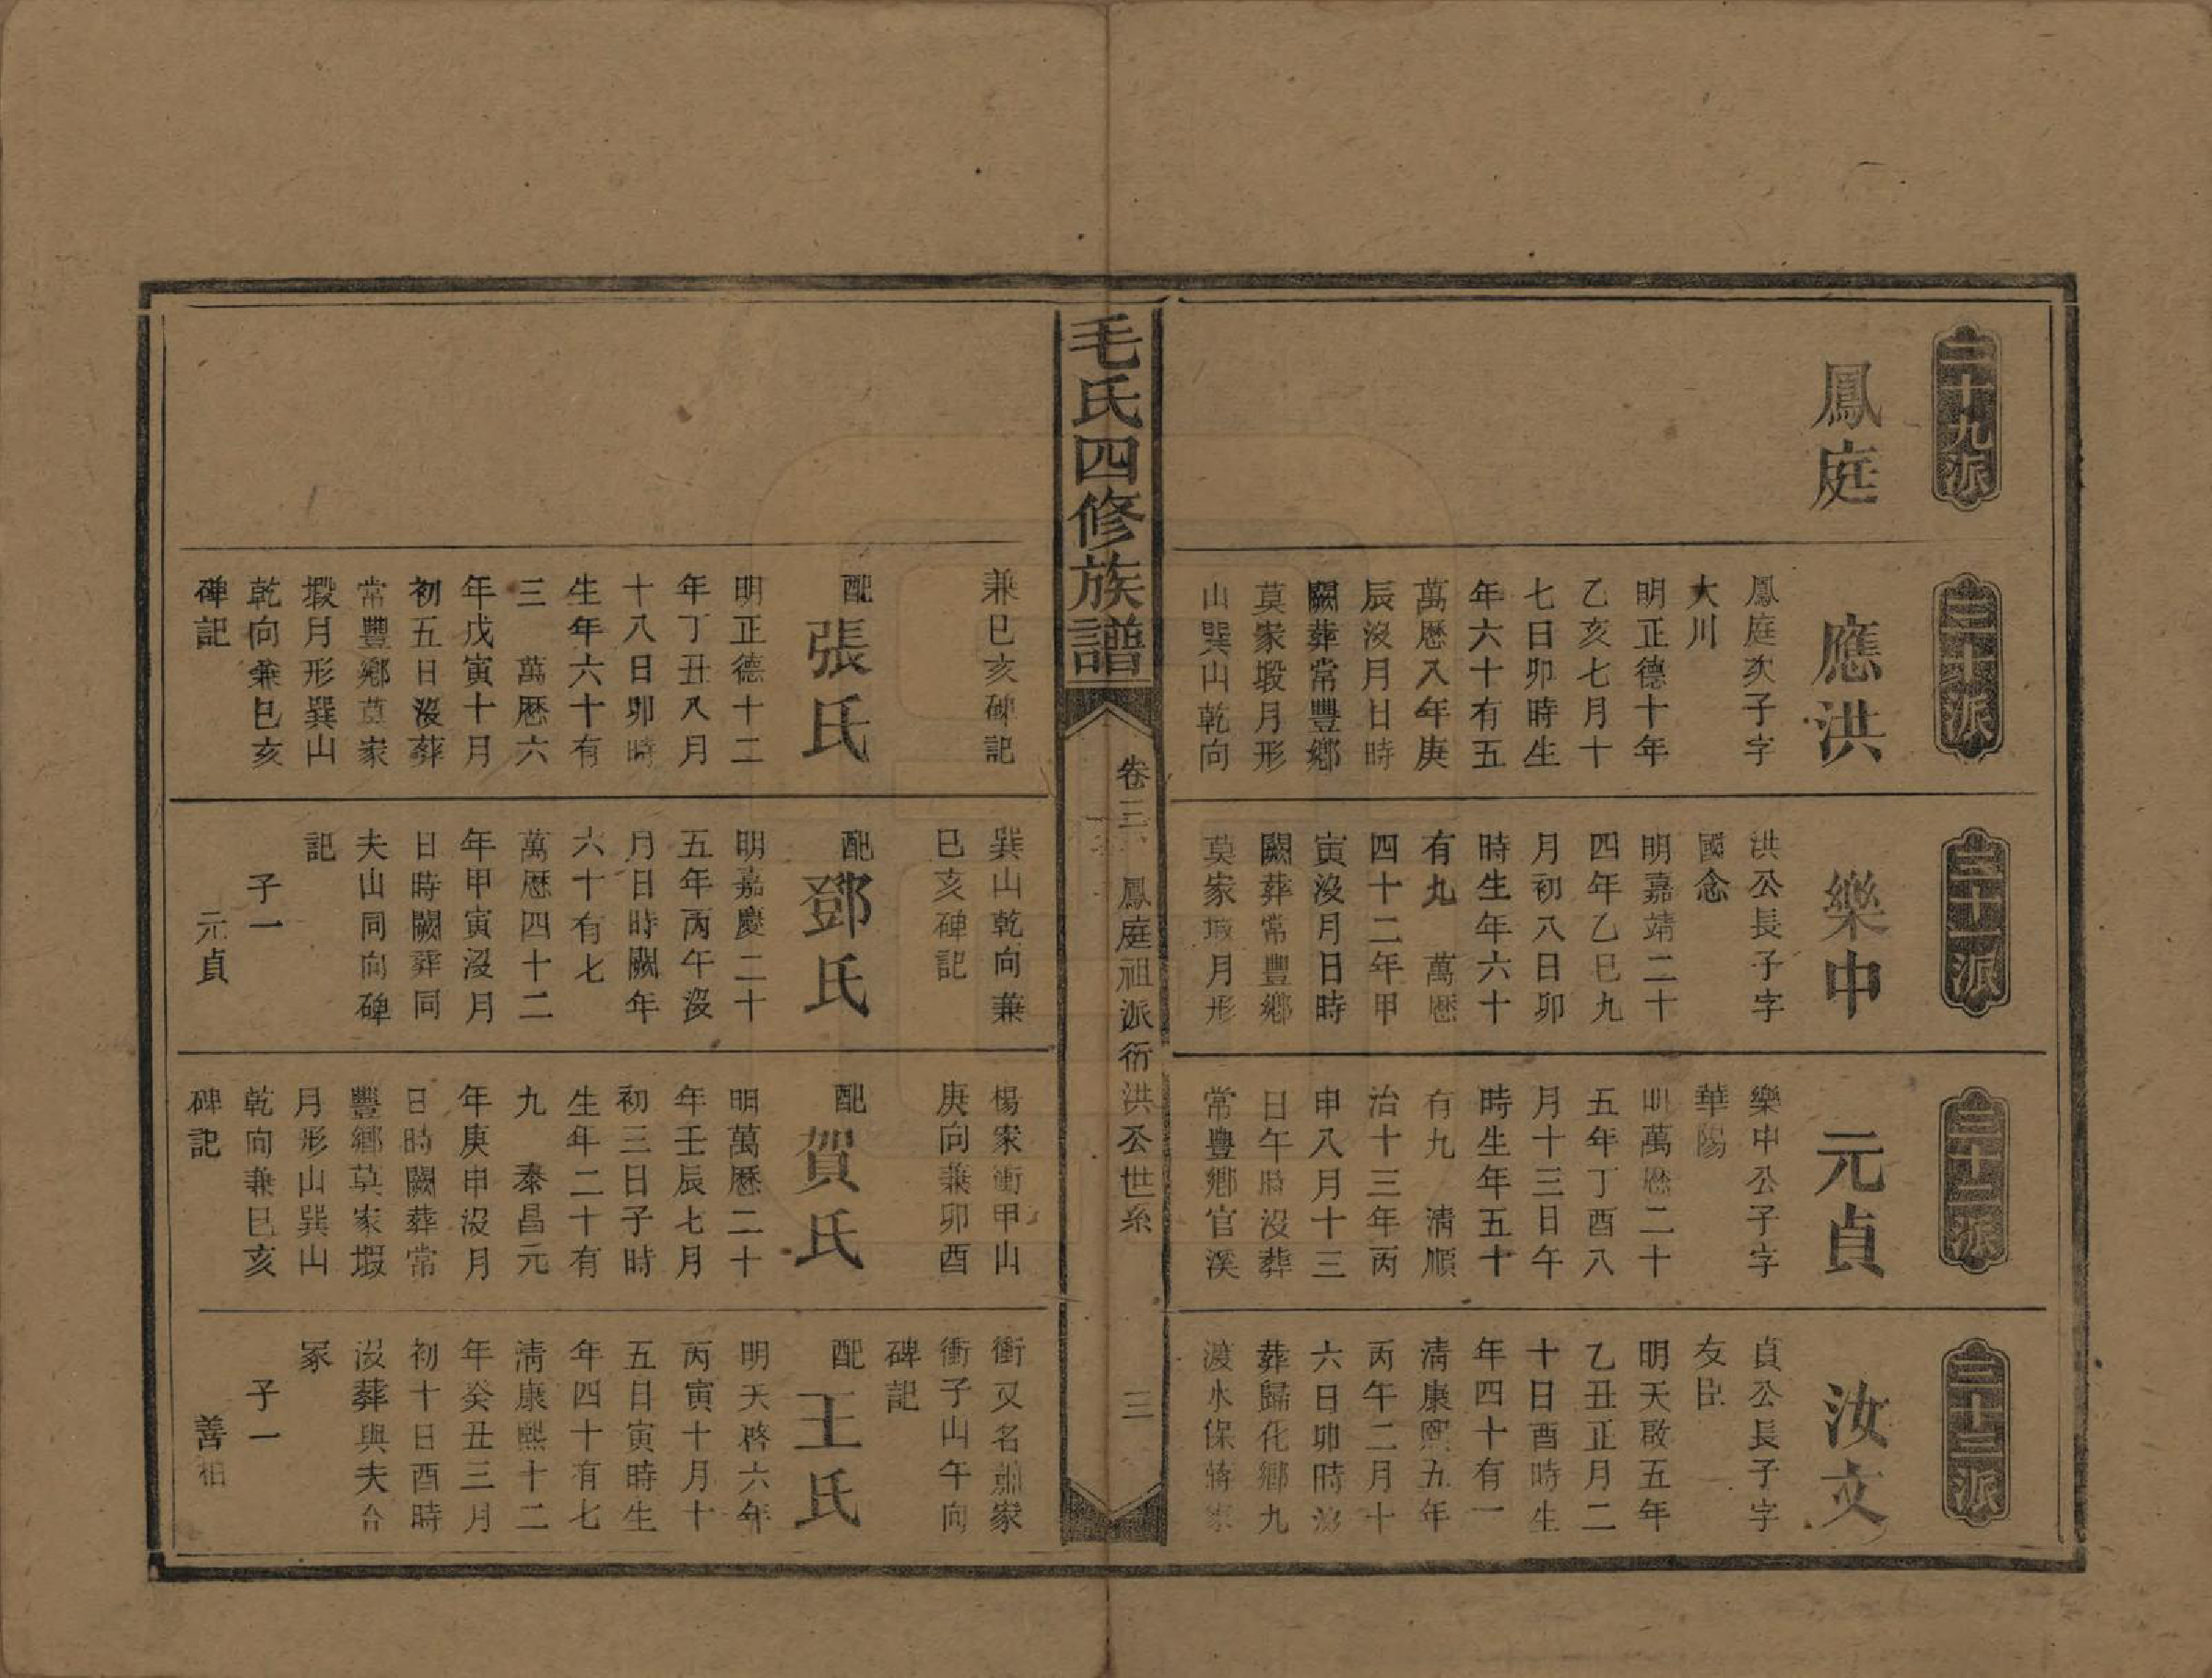 二十九派
鳳庭
三十派
應洪
鳳庭次子字
大川
明正德十年
乙亥七月十
七日卯時生
年六十有五
萬歷八年庚
辰沒月日時
闕葬常豐鄉
莫家塅月形
山巽山乾向
兼巳亥碑記
配張氏
明正德十二
年丁丑八月
十八日卯時
生年六十有
三 萬歷六
年戊寅十月
初五日沒葬
常豐鄉莫家
塅月形巽山
乾向兼巳亥
碑記
三十一派
樂申
洪公長子字
國念
明嘉靖二十
四年乙巳九
月初八日卯
時生年六十
有九 萬歷
四十二年甲
寅沒月日時
闕葬常豐鄉
莫家塅月形
巽山乾向兼
巳亥碑記
配鄧氏
明嘉慶二十
五年丙午沒
月日時闕年
六十有七
萬歷四十二
年甲寅沒月
日時闕葬同
夫山同向碑
記
子一
元貞
三十二派
元貞
樂申公子字
華陽
明萬歷二十
五年丁酉八
月十三日午
時生年五十
有九 清順
治十三年丙
申八月十三
日午時沒葬
常豐鄉官溪
楊家衝甲山
庚向兼卯酉
配賀氏
明萬歷二十
年壬辰七月
初三日子時
生年二十有
九 泰昌元
年庚申沒月
日時闕葬常
豐鄉莫家塅
月形山巽山
乾向兼巳亥
碑記
三十三派
汝文
貞公長子字
友臣
明天啟五年
乙丑正月二
十日酉時生
年四十有一
清康熙五年
丙午二月十
六日卯時沒
葬歸化鄉九
渡水保蔣家
衝又名蕭家
衝子山午向
碑記
配王氏
明天啓六年
丙寅十月十
五日寅時生
年四十有七
清康熙十二
年癸丑三月
初十日酉時
沒葬與夫合
冢
子一
善相
毛氏四修族譜
卷三 鳳庭祖派衍洪公世系
三